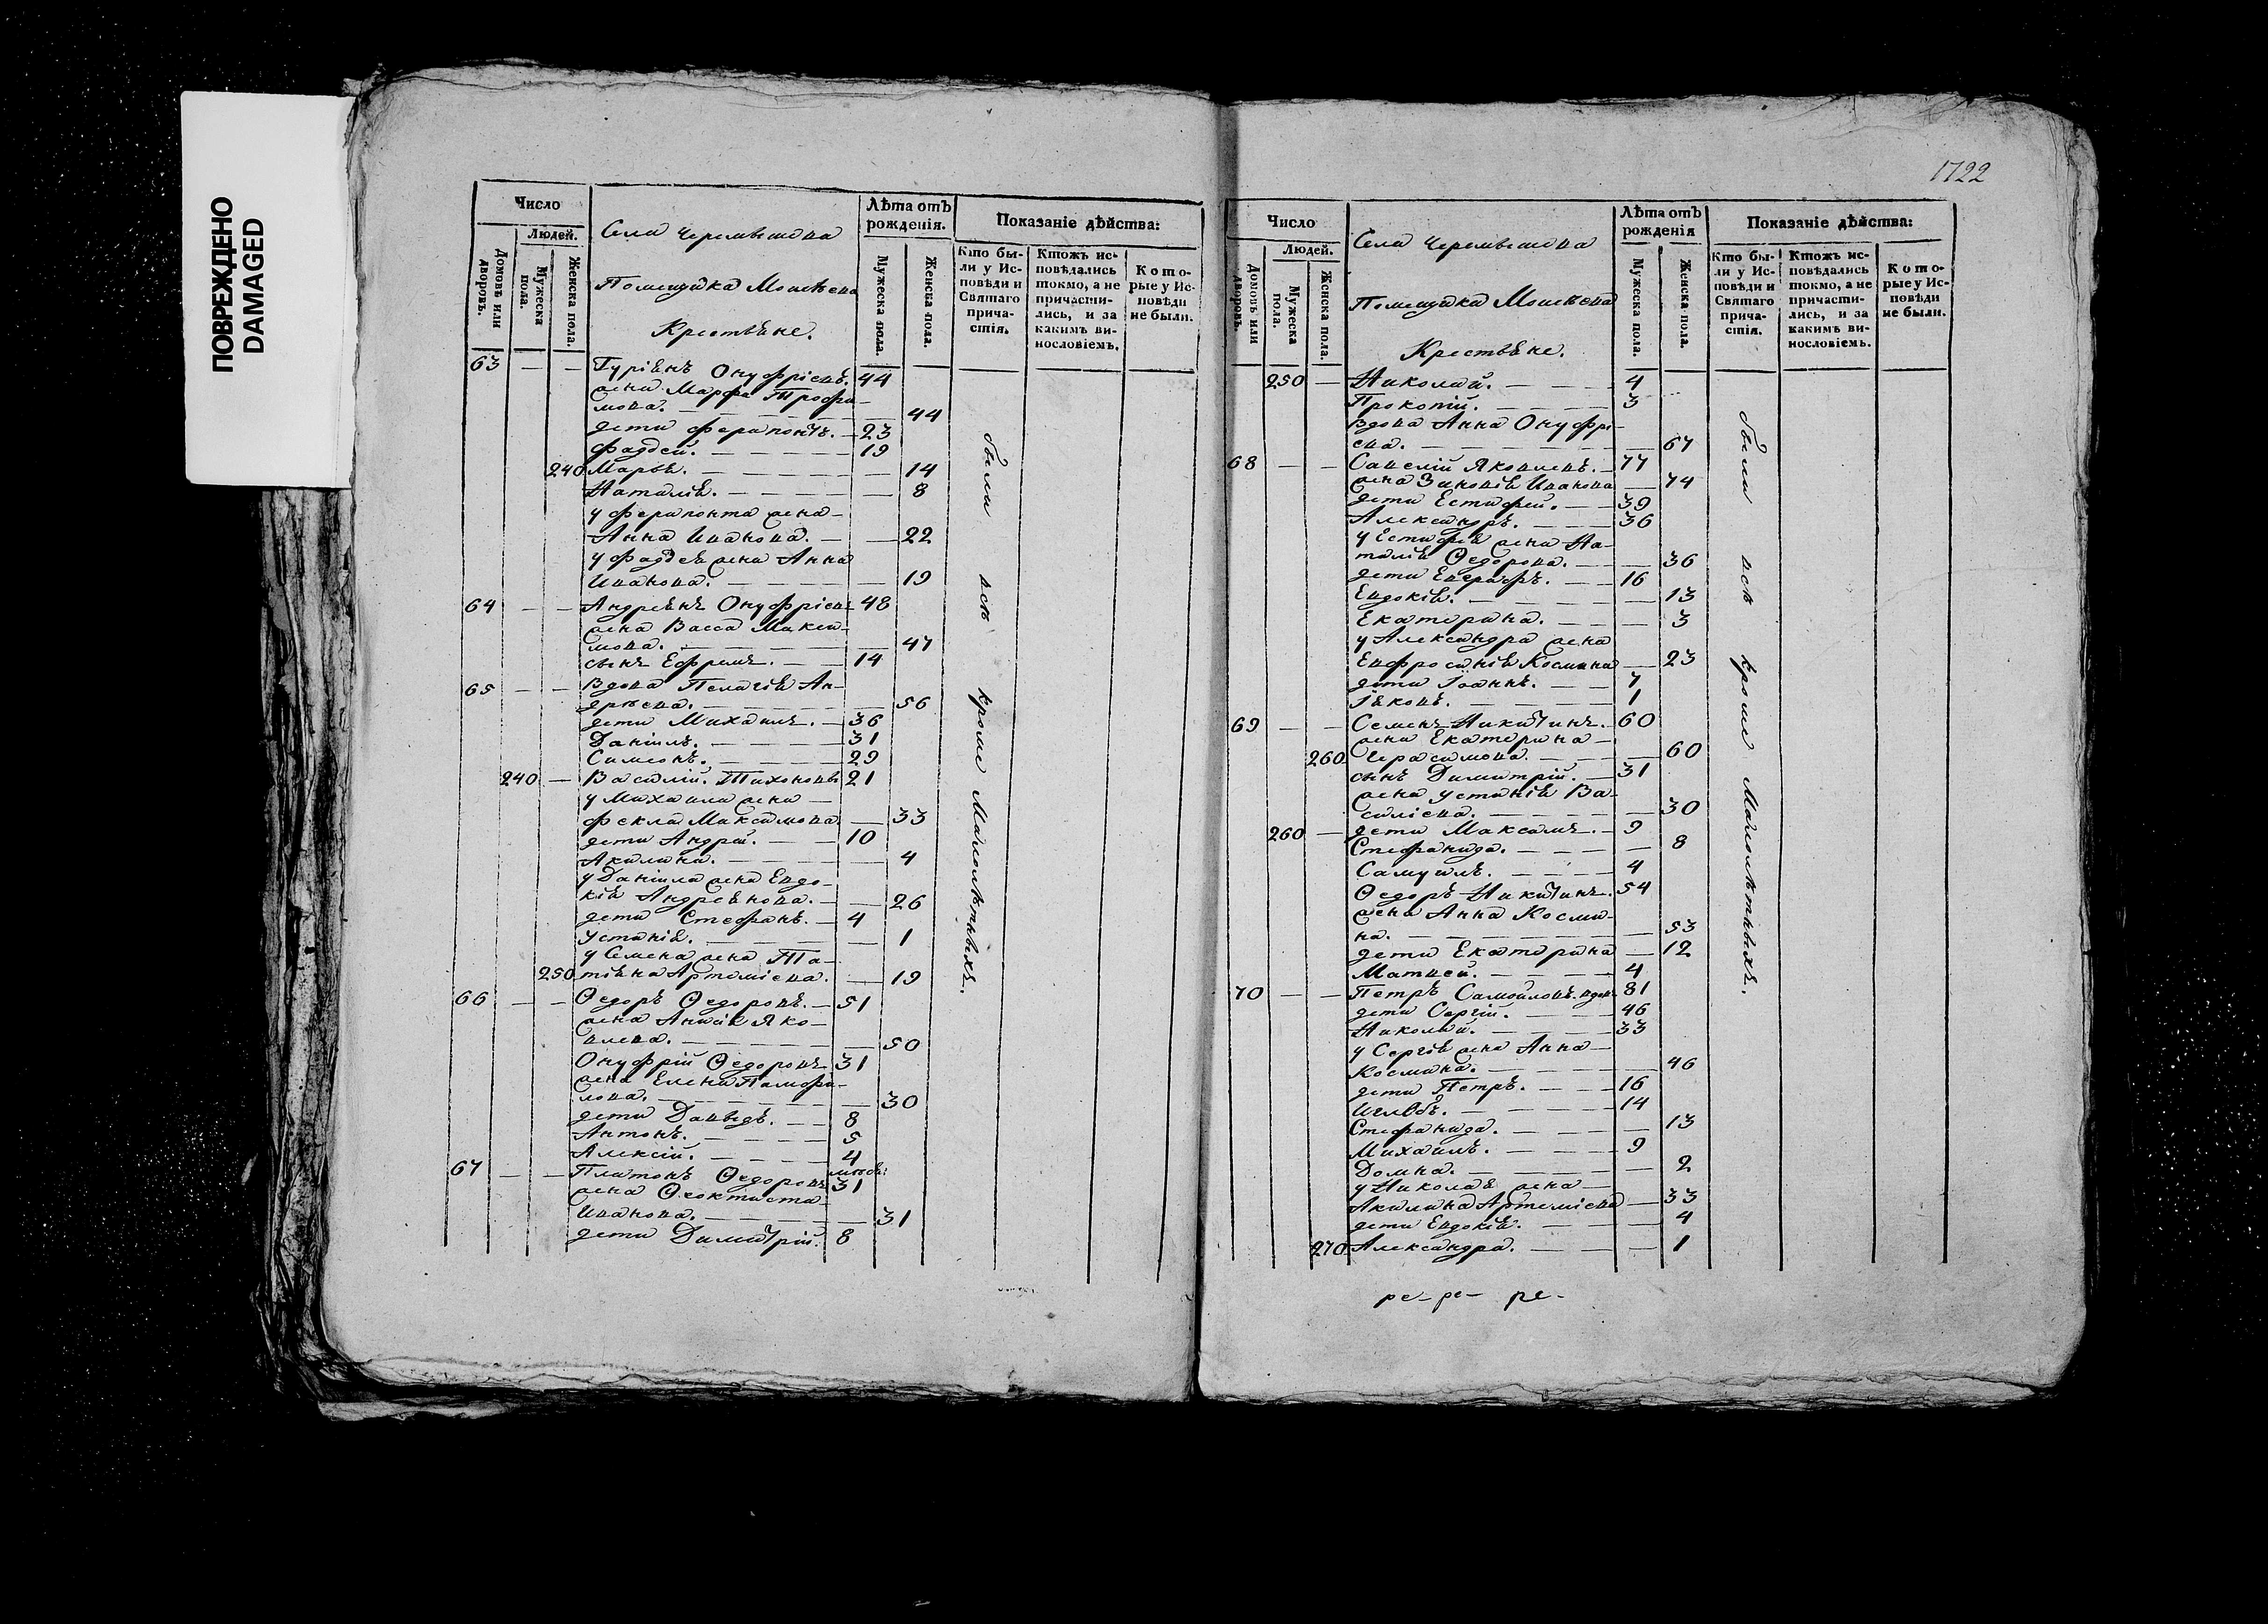 ПОВРЕЖДЕНО
DAMAGED
Число
Людей.
Домовъ или дворовъ.
Мужеска пола.
Женска пола.
Села
Помещика
Крестьяне.
Лѣта отъ рожденія.
Мужеска пола.
Женска пола.
Показаніе дѣйства:
Кто бы-
ли у Ис-
повѣди и
Святаго
прича-
стія.
Ктожъ ис-
повѣдались
токмо, а не
причасти-
лись, и за
какимъ ви-
нословіемъ.
Кото-
рые у Ис-
повѣди
не были.
63 — — Гуріянъ Онуфріевъ. 44
жена Марфа Трофи-
мова. — 44
дети Ферапонтъ. — 23
Фаддей. — 19
240 Марья. — 14
Наталія. — 8
у Ферапонта жена —
Анна Иванова. — 22
у Фаддея жена Анна
Иванова. — 19
64 — — Андреянъ Онуфріевъ 48
жена Васса Макси-
мова. — 47
сынъ Ефремъ. — 14
65 — — Вдова Пелагія Ан-
дреева. — 56
дети Михаилъ. — 36
Даніилъ. — 31
Симеонъ. — 29
240 — Василій Тихоновъ 21
у Михаила жена —
Фекла Максимова — 33
дети Андрей. — 10
Акилина. — 4
у Даніила жена Евдо-
кія Андреянова. — 26
дети Стефанъ. — 4
Устинія. — 1
у Семена жена Та-
250 тіяна Артеміева. — 19
66 — — Ѳедоръ Ѳедоровъ. — 51
жена Анисія Яко-
влева. — 50
Онуфрій Ѳедоровъ 31
жена Елена Памфи-
лова. — 30
дети Давыдъ. — 8
Антонъ. — 5
Алексій. — 4
67 — — Платонъ Ѳедоровъ 31
жена Ѳеоктиста
Иванова. — 31
дети Димитрій. 8
были всѣ кроме Малолѣтныхъ.
1722
Число
Людей.
Домовъ или дворовъ.
Мужеска пола.
Женска пола.
Села
Помещика
Крестьяне.
Лѣта отъ рожденія
Мужеска пола.
Женска пола.
Показаніе дѣйства:
Кто бы-
ли у Ис-
повѣди и
Святаго
прича-
стія.
Ктожъ ис-
повѣдались
токмо, а не
причасти-
лись, и за
какимъ ви-
нословіемъ.
Кото-
рые у Ис-
повѣди
не были.
250 — Николай. — 4
Прокопій. — 3
Вдова Анна Онуфрі-
ева. — 67
68 — — Савелій Яковлевъ. — 77
жена Зиновія Иванова — 74
дети Естифей. — 39
Александръ. — 36
у Естифея жена На-
талія Ѳедорова. — 36
дети Евграфъ. — 16
Евдокія. — 13
Екатерина. — 3
у Александра жена
Евфросинія Космина — 23
дети Іоаннъ. — 7
Іяковъ. — 1
69 — — Семенъ Никитинъ. 60
жена Екатерина —
260 Герасимова. — 60
сынъ Димитрій. — 31
жена Устинія Ва-
силіева. — 30
260 — дети Максимъ. — 9
Стефанида. — 8
Самуилъ. — 4
Ѳедоръ Никитинъ. 54
жена Анна Косми-
на. — 53
дети Екатерина — 12
Матвей. — 4
70 — — Петръ Самойловъ. вдов: 81
дети Сергій. — 46
Николай. — 33
у Сергія жена Анна —
Космина. — 46
дети Петръ. — 16
14
Стефанида. — 13
Михаилъ. — 9
Домна. — 2
у Николая жена —
Акилина Артеміева — 33
дети Евдокія. — 4
270 Александра. — 1
были всѣ кроме Малолѣтныхъ.
ре- ре- ре-